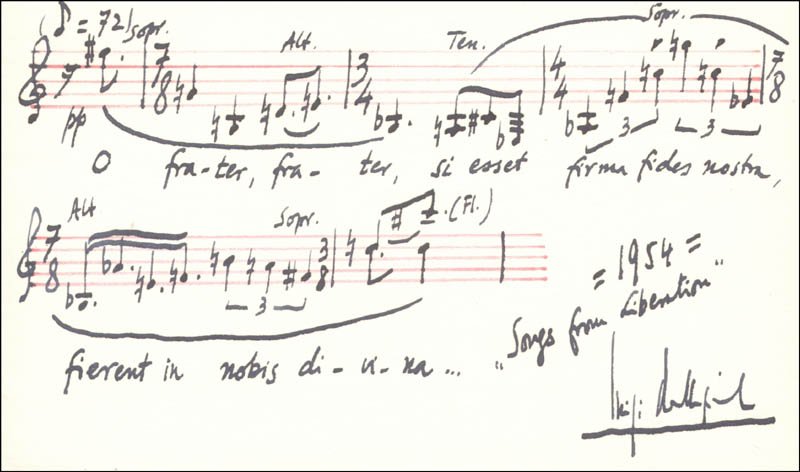 ♪ = 72 Sopr. Alt. Ten. Sopr.
7 8 3 4 4 4 7 8
pp
3 3
O fra-ter, fra-ter, si esset firma fides nostra,
Alt Sopr. (Fl.)
7 8 3 8
3
fierent in nobis di-vi-na...
= 1954 =
"Songs from Liberation"
Luigi Dallapiccola